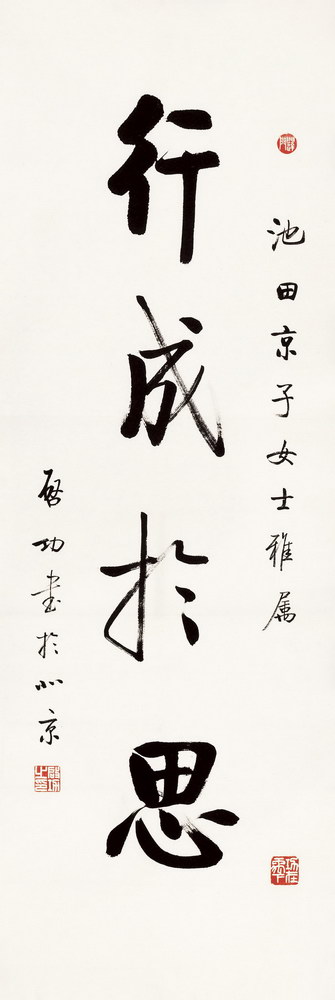 池田京子女士雅属
行成於思
启功书於北京